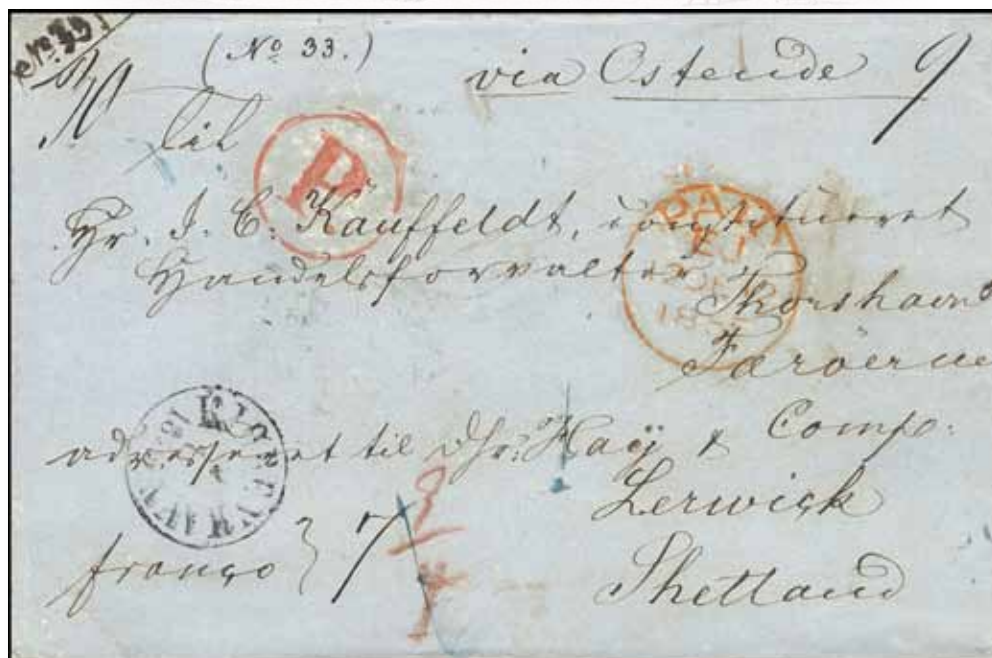 No 30
(No 33.)
via Ostende
9
Til
P
Hr. J. C. Kauffeldt, constitueret
Handelsforvalter
Thorshavn
Færöerne
PAID
KIØBENHAVN
adresseret til Dhr. Haÿ & Comp.
Lerwick
Shetland
franco 7